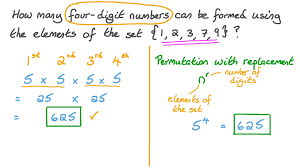 How many four-digit numbers can be formed using
the elements of the set {1, 2, 3, 7, 9} ?
1st 2nd 3rd 4th
5 x 5 x 5 x 5
= 25 x 25
= 625 ✓
Permutation with replacement
nʳ
number of
digits
elements of
the set
5⁴ = 625